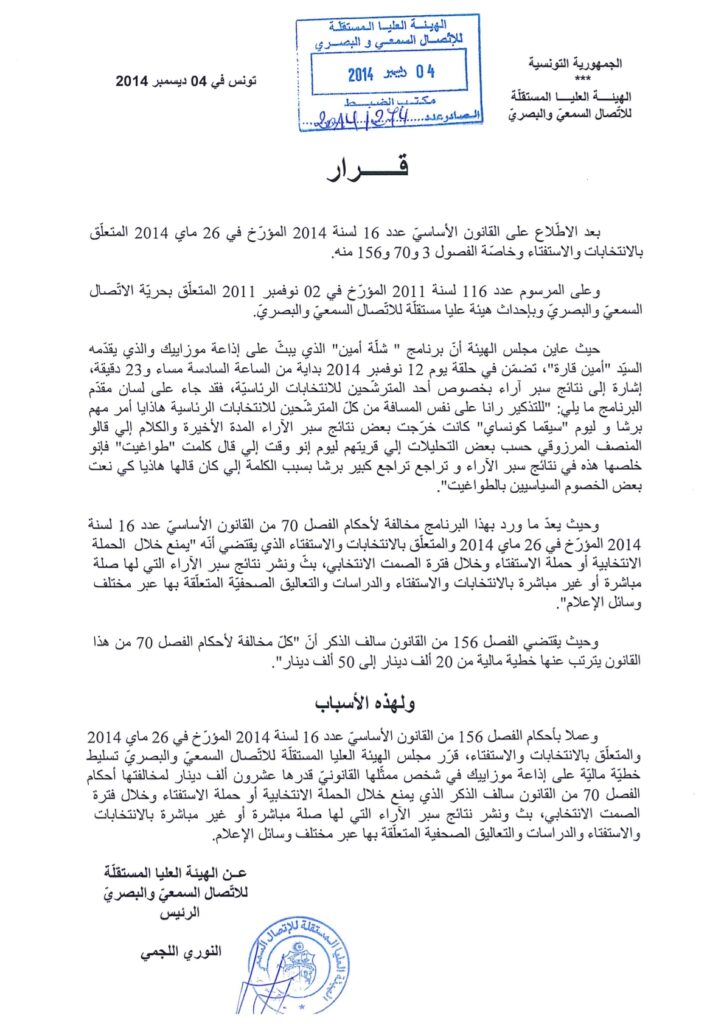 الجمهورية التونسية
***
الهيئـــة العليـــا المستقلّة
للاتّصال السمعيّ والبصريّ
الهيئـة العليـا المستقلة
للإتصال السمعـي و البصـري
04 ديسمبر 2014
مكتـب الضبـط
الصادر عدد.....2014/274....
تونس في 04 ديسمبر 2014
قـــرار
بعد الاطّلاع على القانون الأساسيّ عدد 16 لسنة 2014 المؤرّخ في 26 ماي 2014 المتعلّق
بالانتخابات والاستفتاء وخاصّة الفصول 3 و70 و156 منه.
وعلى المرسوم عدد 116 لسنة 2011 المؤرّخ في 02 نوفمبر 2011 المتعلّق بحريّة الاتّصال
السمعيّ والبصريّ وبإحداث هيئة عليا مستقلّة للاتّصال السمعيّ والبصريّ.
حيث عاين مجلس الهيئة أنّ برنامج " شلّة أمين" الذي يبثّ على إذاعة موزاييك والذي يقدّمه
السيّد "أمين قارة"، تضمّن في حلقة يوم 12 نوفمبر 2014 بداية من الساعة السادسة مساء و23 دقيقة،
إشارة إلى نتائج سبر آراء بخصوص أحد المترشّحين للانتخابات الرئاسيّة، فقد جاء على لسان مقدّم
البرنامج ما يلي: "للتذكير رانا على نفس المسافة من كلّ المترشّحين للانتخابات الرئاسية هاذايا أمر مهم
برشا و ليوم "سيقما كونساي" كانت خرّجت بعض نتائج سبر الآراء المدة الأخيرة والكلام إلي قالو
المنصف المرزوقي حسب بعض التحليلات إلي قريتهم ليوم إنو وقت إلي قال كلمت "طواغيت" فإنو
خلصها هذه في نتائج سبر الآراء و تراجع تراجع كبير برشا بسبب الكلمة إلي كان قالها هاذيا كي نعت
بعض الخصوم السياسيين بالطواغيت".
وحيث يعدّ ما ورد بهذا البرنامج مخالفة لأحكام الفصل 70 من القانون الأساسيّ عدد 16 لسنة
2014 المؤرّخ في 26 ماي 2014 والمتعلّق بالانتخابات والاستفتاء الذي يقتضي أنّه "يمنع خلال الحملة
الانتخابية أو حملة الاستفتاء وخلال فترة الصمت الانتخابي، بثّ ونشر نتائج سبر الآراء التي لها صلة
مباشرة أو غير مباشرة بالانتخابات والاستفتاء والدراسات والتعاليق الصحفيّة المتعلّقة بها عبر مختلف
وسائل الإعلام".
وحيث يقتضي الفصل 156 من القانون سالف الذكر أنّ "كلّ مخالفة لأحكام الفصل 70 من هذا
القانون يترتب عنها خطية مالية من 20 ألف دينار إلى 50 ألف دينار".
ولهذه الأسباب
وعملا بأحكام الفصل 156 من القانون الأساسيّ عدد 16 لسنة 2014 المؤرّخ في 26 ماي 2014
والمتعلّق بالانتخابات والاستفتاء، قرّر مجلس الهيئة العليا المستقلّة للاتّصال السمعيّ والبصريّ تسليط
خطيّة ماليّة على إذاعة موزاييك في شخص ممثّلها القانونيّ قدرها عشرون ألف دينار لمخالفتها أحكام
الفصل 70 من القانون سالف الذكر الذي يمنع خلال الحملة الانتخابية أو حملة الاستفتاء وخلال فترة
الصمت الانتخابي، بث ونشر نتائج سبر الآراء التي لها صلة مباشرة أو غير مباشرة بالانتخابات
والاستفتاء والدراسات والتعاليق الصحفية المتعلّقة بها عبر مختلف وسائل الإعلام.
عـن الهيئة العليا المستقلّة
للاتّصال السمعيّ والبصريّ
الرئيس
النوري اللجمي
الهيئة العليا المستقلة للإتصال السمعي